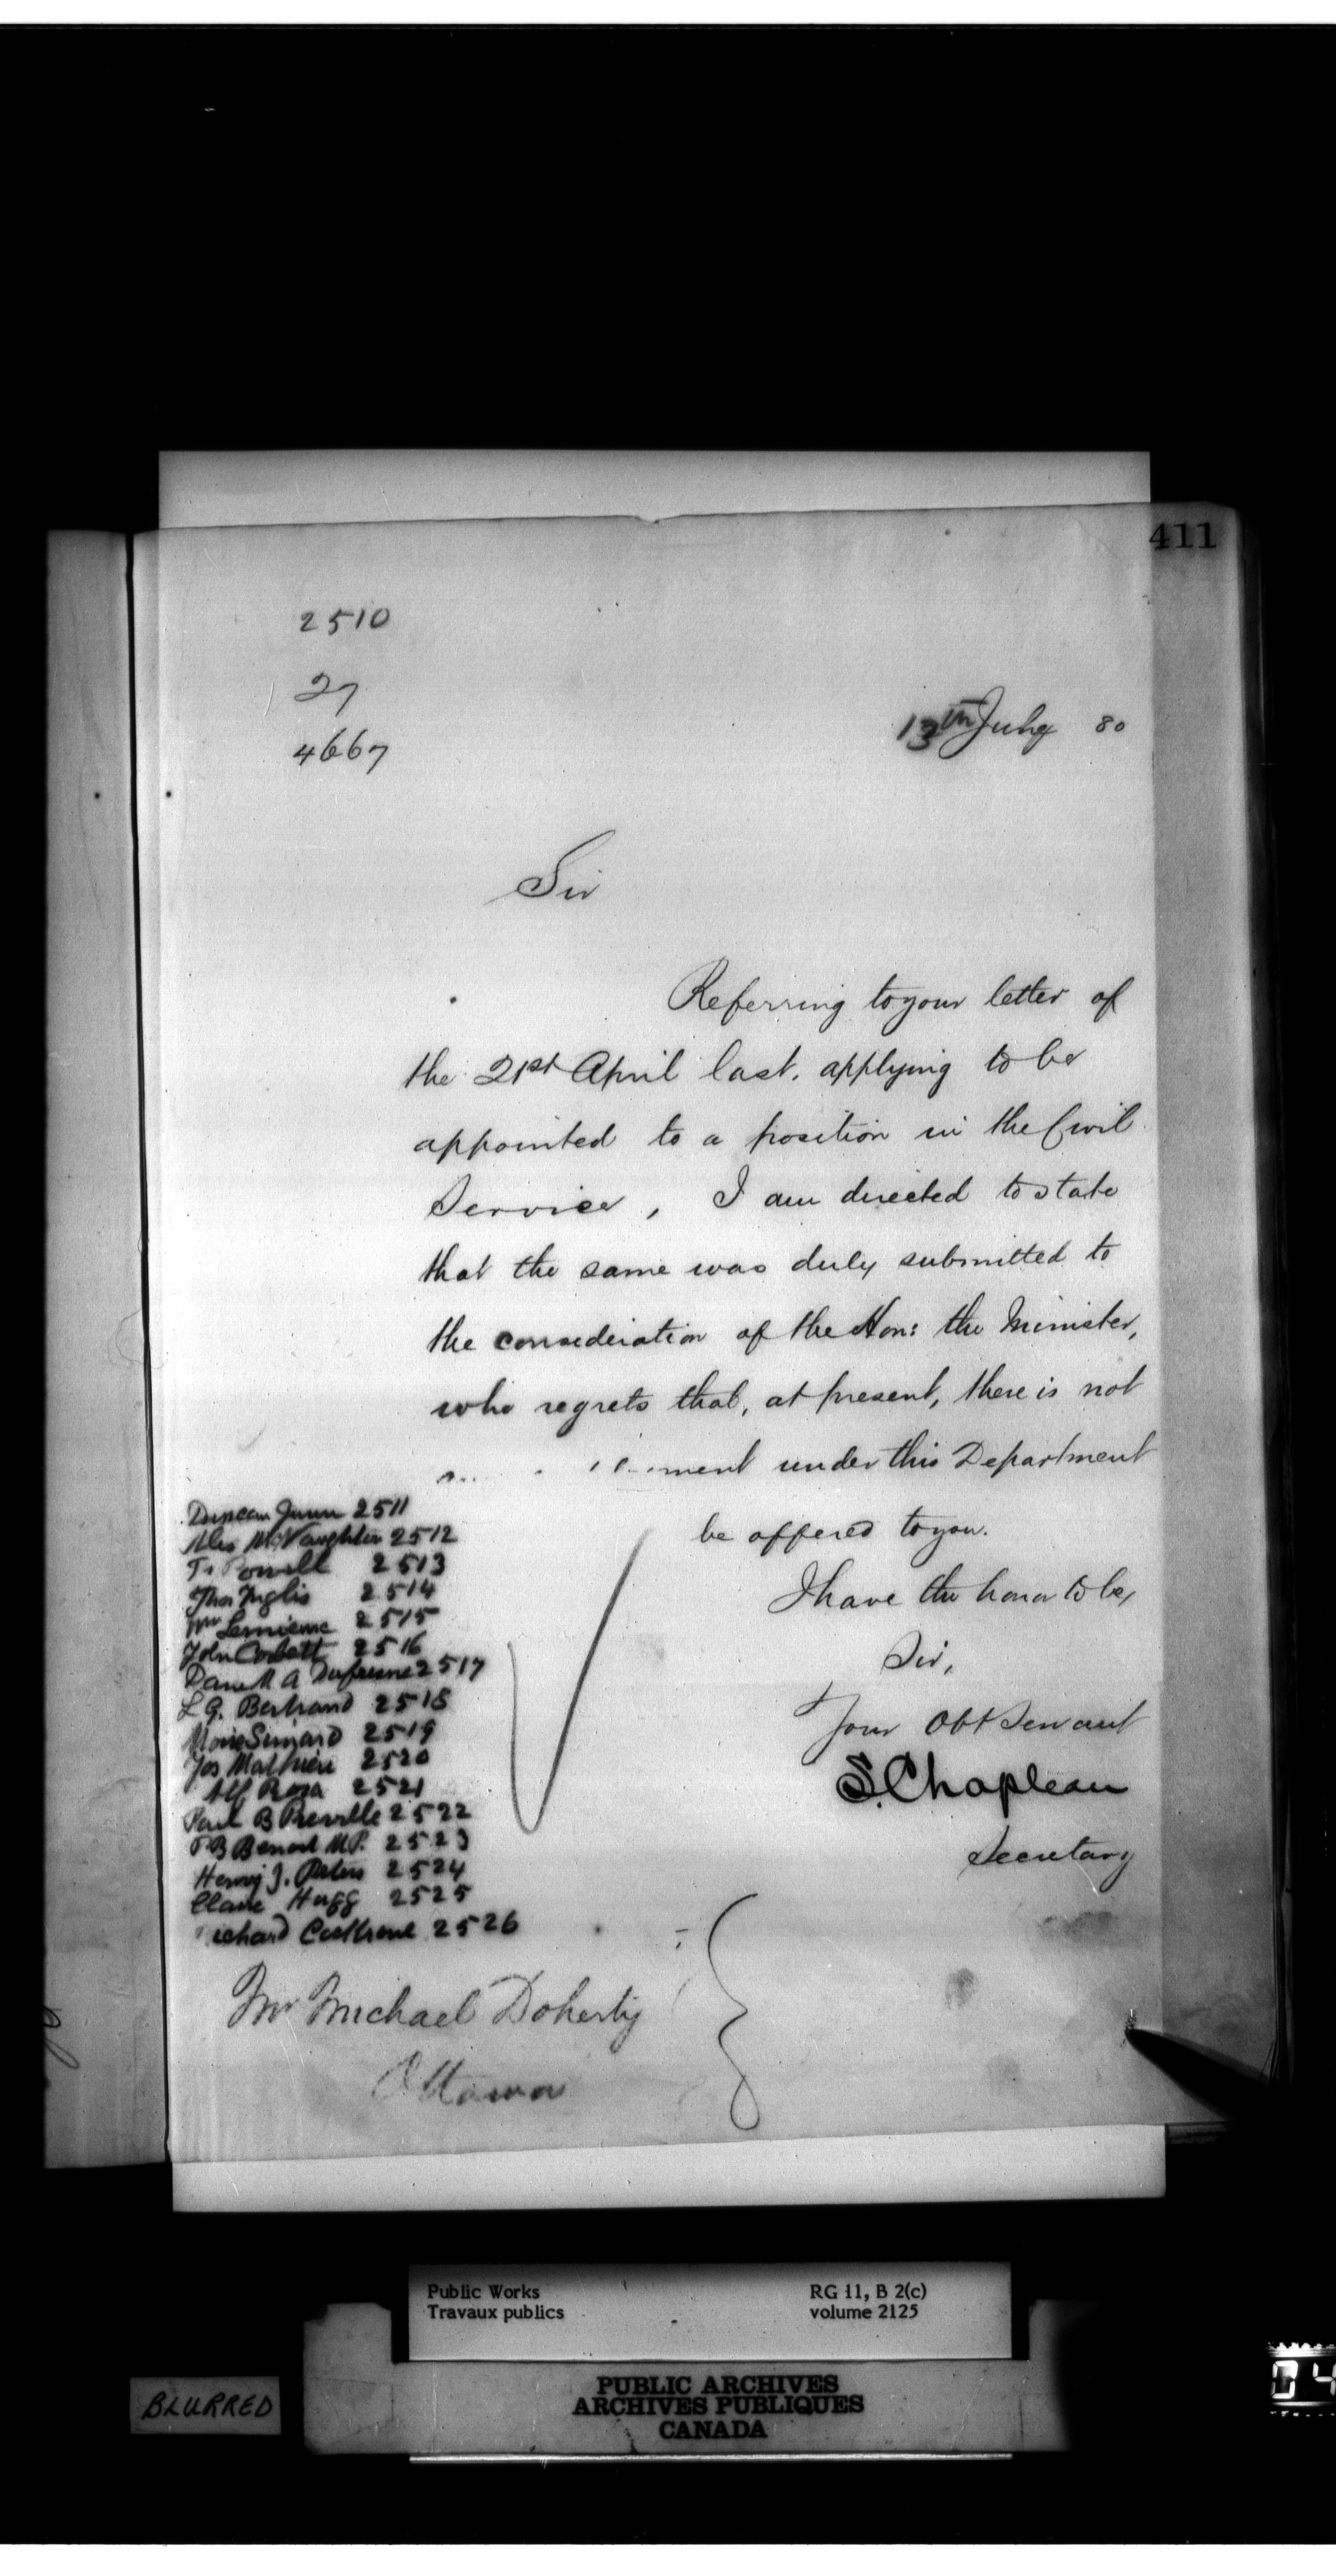 411
2510
27
4667
13th July 80
Sir
Referring to your letter of
the 21st April last, applying to be
appointed to a position in the Civil
Service, I am directed to state
that the same was duly submitted to
the consideration of the Hon: the Minister,
who regrets that, at present, there is not
under this Department
be offered to you.
I have the honor to be,
Sir,
Your Obt Servant
S. Chapleau
Secretary
Duncan 2511
Alex McNaughton 2512
Powell 2513
Thos Inglis 2514
2515
John Corbett 2516
A Dufresne 2517
L G. Bertrand 2518
Moise Simard 2519
Jos Mathieu 2520
Alf Rosa 2521
Paul B Preville 2522
P B Benoit M.P. 2523
Henry J. Peters 2524
Hugg 2525
2526
Mr Michael Doherty
Ottawa
Public Works
Travaux publics
RG 11, B 2(c)
volume 2125
BLURRED
PUBLIC ARCHIVES
ARCHIVES PUBLIQUES
CANADA
04